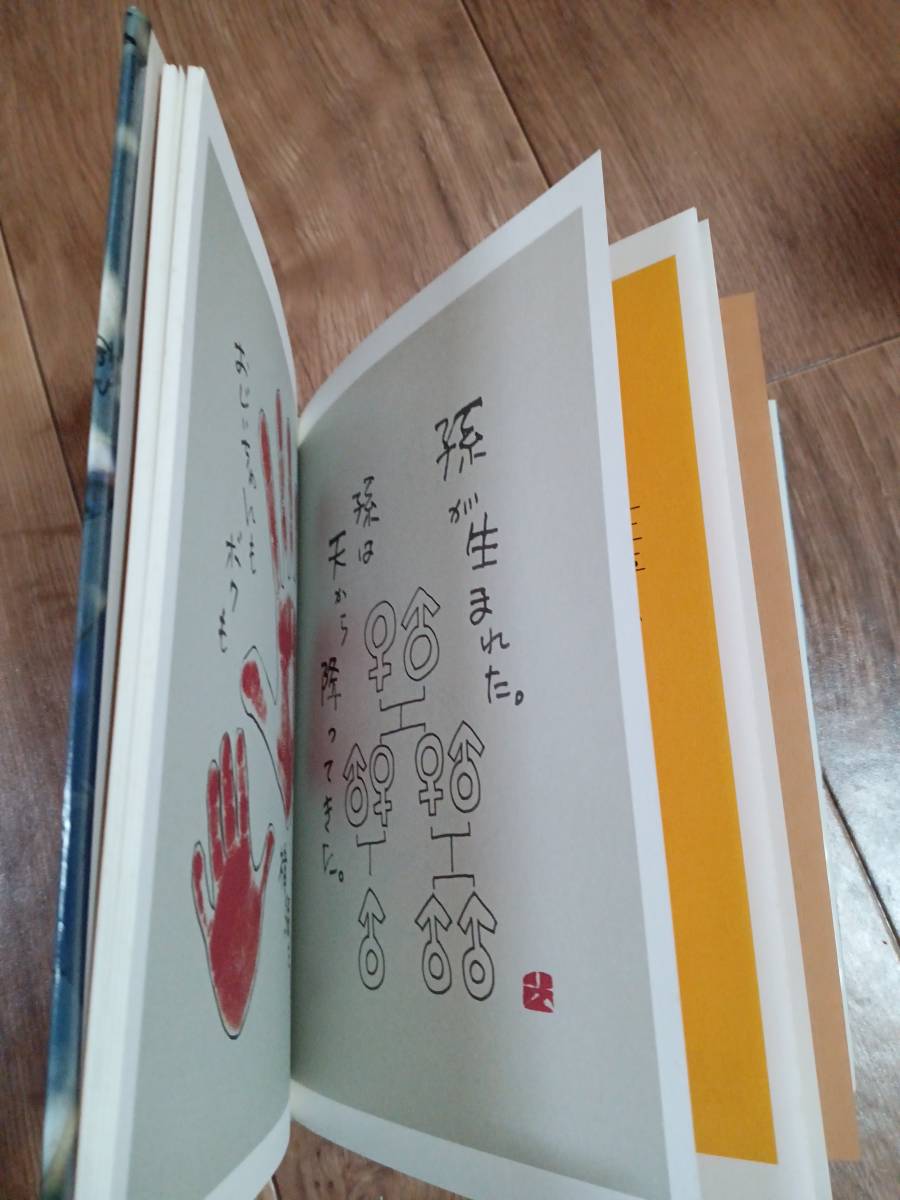 孫が生まれた。
孫は
天から降ってきた。
おじいちゃんも
ボクも